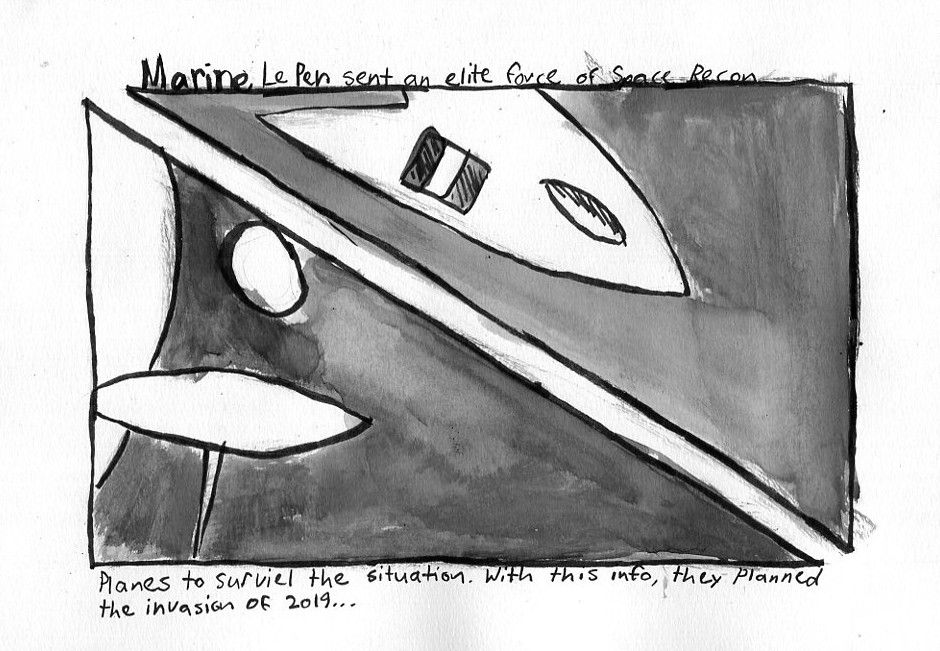 Marine Le Pen sent an elite force of Space Recon
Planes to surviel the situation. With this info, they planned
the invasion of 2019...